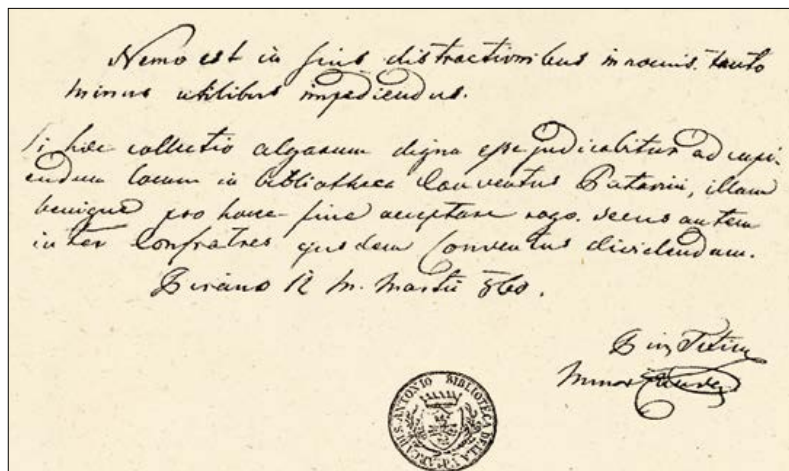 Nemo est in suis distractionibus innocuis. tanto
minus utilibus impediendus.
Si hæc collectio algarum digna esse judicabitur ad cupi-
endum locum in bibliotheca Conventus Patavini, illam
benigne pro hocce fine acceptare rogo. secus autem
inter Confratres ejusdem Conventus dividendam.
Pirano 12 m. Martii 860.
Pius Titius
Minor
BIBLIOTECA DELLA V. ARCA DI S. ANTONIO